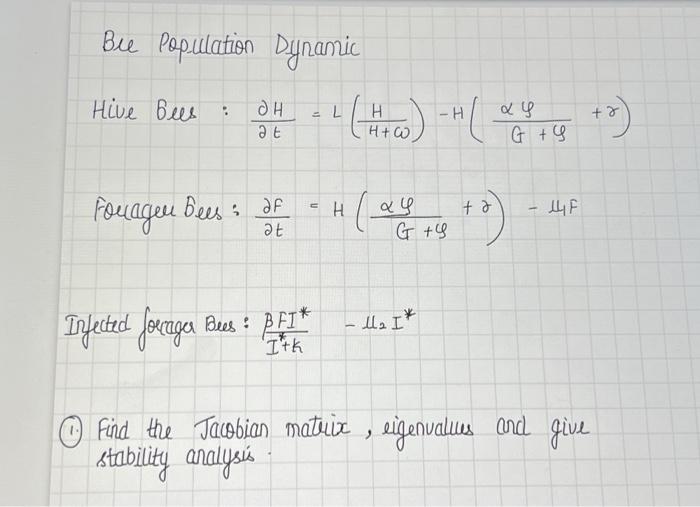 Bee Population Dynamic
Hive Bees : ∂H/∂t = L (H/(H+ω)) - H (αφ/(G+φ) + γ)
Forager Bees : ∂F/∂t = H (αφ/(G+φ) + γ) - μ₁F
Infected forager Bees : βFI*/(I*+k) - μ₂I*
① Find the Jacobian matrix, eigenvalues and give
stability analysis.